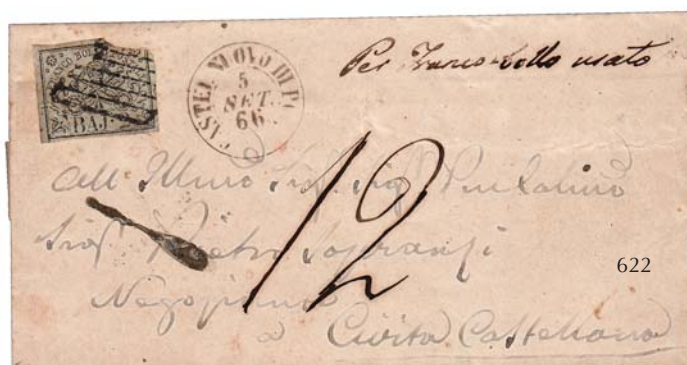 FRANCO BOLLO
BAJ
CASTEL NUOVO DI PO
5
SET.
66
Per Franco-bollo usato
12
All' Illmo Sig. Sig. Pne Colmo
Sig. Pietro Sopranzi
Negoziante
a Civita Castellana
622